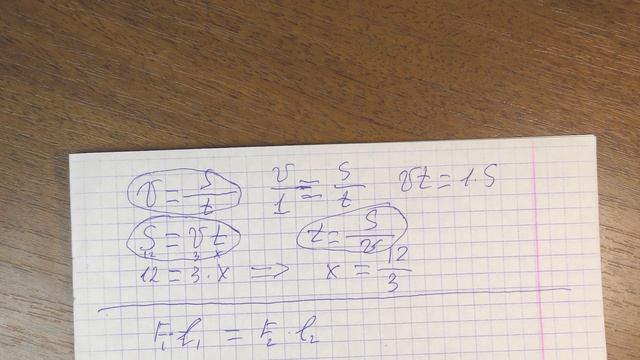 v = s/t   v/1 = s/t   vt = 1·s
S = vt   t = s/v
12 3 x
12 = 3·x => x = 12/3
F₁·l₁ = F₂·l₂